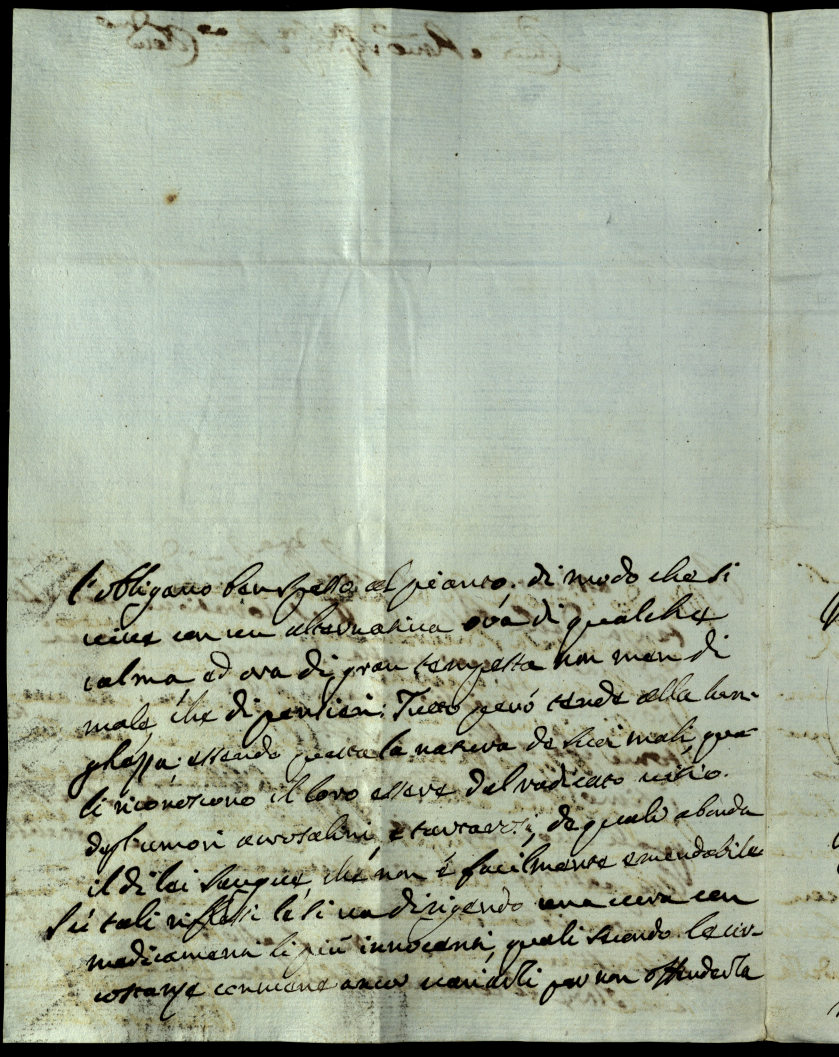 l'obligano benspesso al pianto, di modo che si
vive con un alternativa ora di qualche
calma, ed ora di gran tempesta non men di
male, che di pensieri: Tutto però tende alla lun-
ghezza; essendo questa la natura de suoi mali, qua-
li riconoscono il loro essere dal radicato vitio
degl'umori acrosalini, e tartarosi, de quali abonda
il di lei sangue, che non é facilmente emendabile
Sú tali riflessi le si va dirigendo una cura con
medicamenti li più innocenti, quali secondo le cir-
costanze conviene ancor variarli per non offenderla